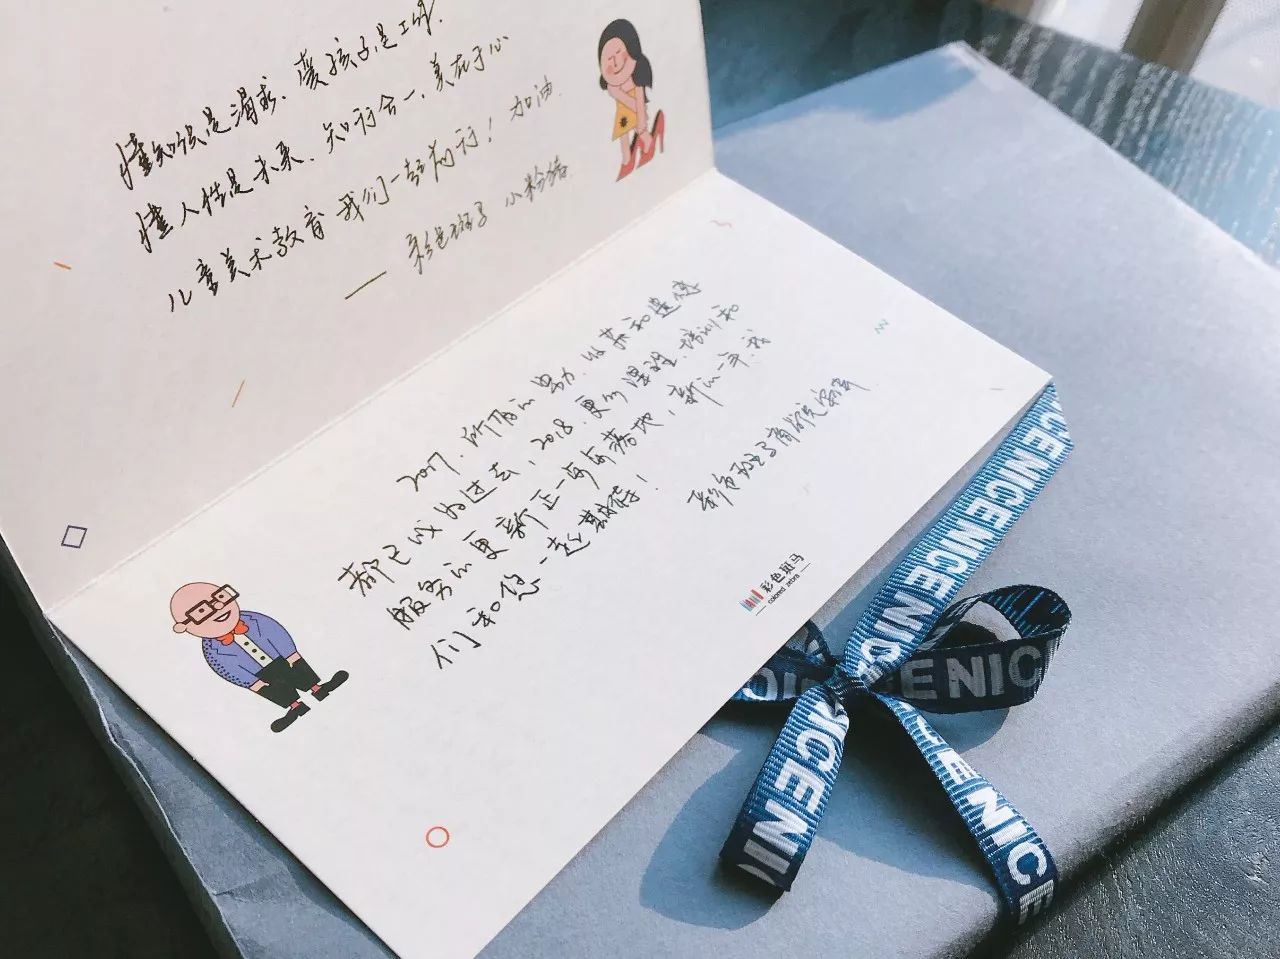 懂知识是渴求、爱孩子是工作
懂人性是未来、知行合一、美在于心
儿童美术教育 我们一起前行! 加油.
—— 彩色斑马 小粉猪
2017,所有的努力、收获和遗憾
都已成为过去,2018,更多课程、培训和
服务的更新正一步步落地,新的一年,我
们和您一起期待!
彩色斑马
彩色斑马
colored zebra
NICENICENICENICE
NICE
NICE
NICE